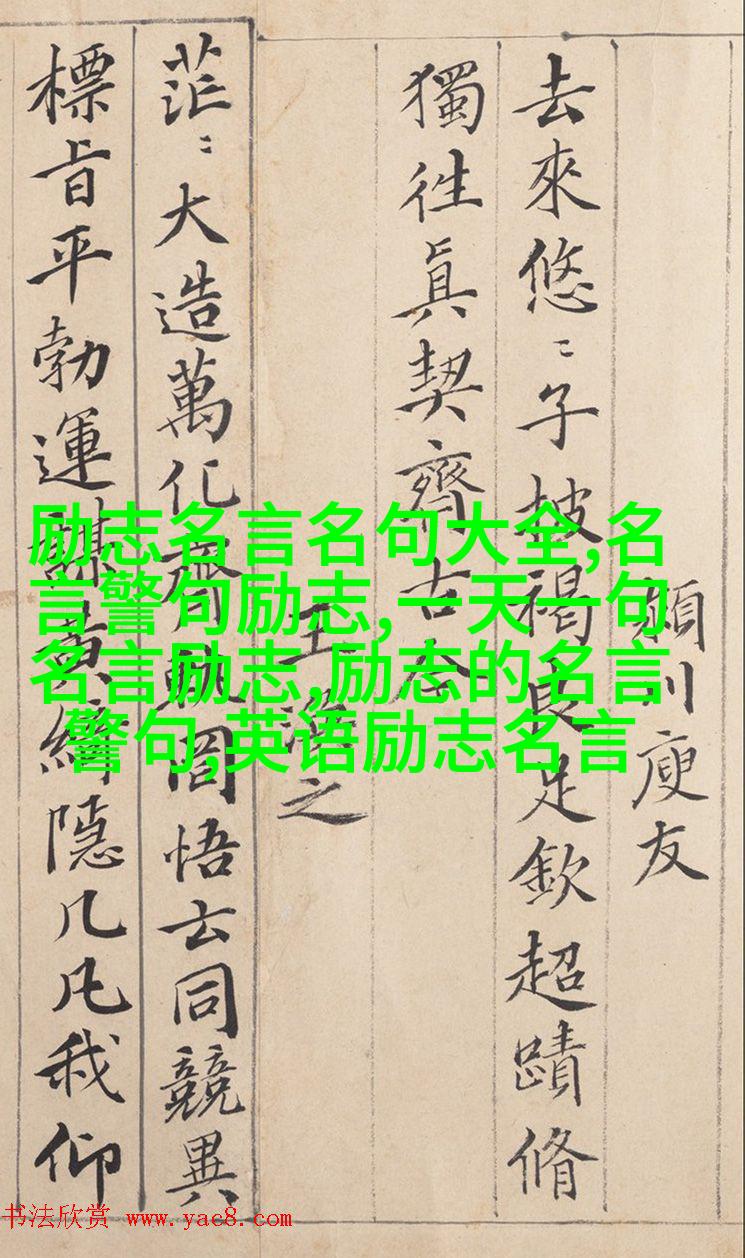 頴川庾友
去來悠〻子披褐良足欽超蹟脩
獨徃眞契齊古今
王渙之
茫〻大造萬化齊軌罔悟玄同競異
標旨平勃運謀黃綺隱几凡我仰
励志名言名句大全,名
言警句励志,一天一句
名言励志,励志的名言
警句,英语励志名言
书法欣赏 www.yac8.com